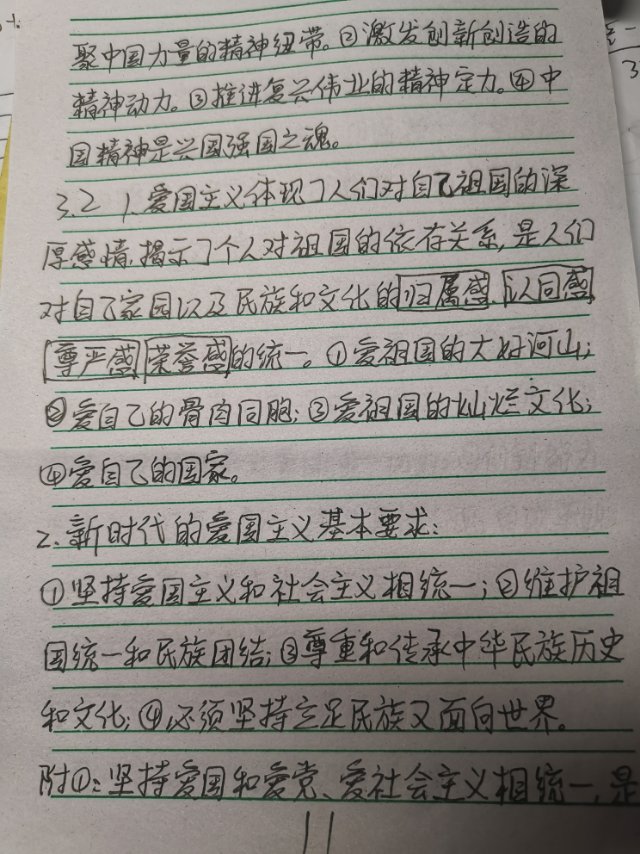 聚中国力量的精神纽带。②激发创新创造的
精神动力。③推进复兴伟业的精神定力。④中
国精神是兴国强国之魂。
3.2 1.爱国主义体现了人们对自己祖国的深
厚感情,揭示了个人对祖国的依存关系,是人们
对自己家园以及民族和文化的归属感、认同感
尊严感 荣誉感的统一。①爱祖国的大好河山;
②爱自己的骨肉同胞;③爱祖国的灿烂文化;
④爱自己的国家。
2.新时代的爱国主义基本要求:
①坚持爱国主义和社会主义相统一;②维护祖
国统一和民族团结;③尊重和传承中华民族历史
和文化;④必须坚持立足民族又面向世界。
附①:坚持爱国和爱党、爱社会主义相统一,是
11